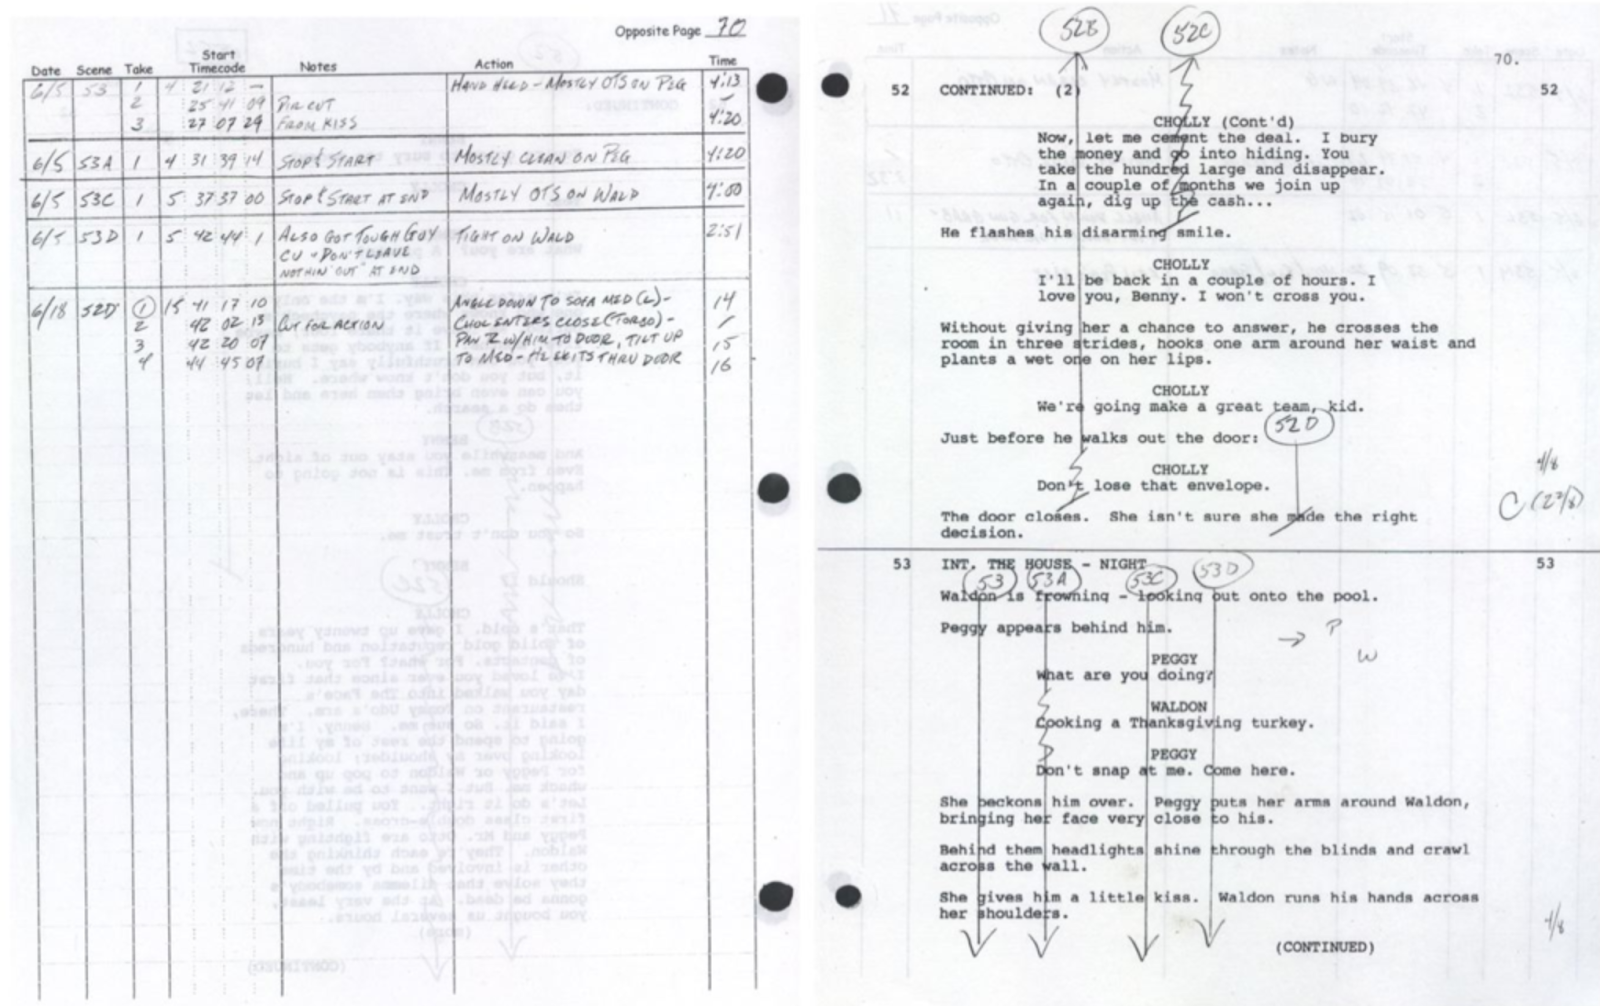 Opposite Page 70
Date Scene Take Start Timecode Notes Action Time
6/5 53 1 4 21 12 — HAND HELD - MOSTLY OTS ON PEG 4:13
2 25 41 09 PU CUT
3 27 07 29 FROM KISS 4:20
6/5 53A 1 4 31 39 14 STOP & START MOSTLY CLEAN ON PEG 4:20
6/5 53C 1 5 37 37 00 STOP & START AT END MOSTLY OTS ON WALD 4:00
6/5 53D 1 5 42 44 1 ALSO GOT TOUGH GUY TIGHT ON WALD 2:51
CU "DON'T LEAVE
NOTHIN' OUT" AT END
6/18 52D 1 15 41 17 10 ANGLE DOWN TO SOFA MED (L) - 14
2 42 02 13 CUT FOR ACTION CHOL ENTERS CLOSE (TORSO) -
3 42 20 07 PAN R W/HIM TO DOOR, TILT UP 15
4 44 45 07 TO MED - HE EXITS THRU DOOR 16
52B 52C
70.
52 CONTINUED: (2) 52
CHOLLY (Cont'd)
Now, let me cement the deal. I bury
the money and go into hiding. You
take the hundred large and disappear.
In a couple of months we join up
again, dig up the cash...
He flashes his disarming smile.
CHOLLY
I'll be back in a couple of hours. I
love you, Benny. I won't cross you.
Without giving her a chance to answer, he crosses the
room in three strides, hooks one arm around her waist and
plants a wet one on her lips.
CHOLLY
We're going make a great team, kid.
52D
Just before he walks out the door:
CHOLLY
Don't lose that envelope.
4/8
C (2 2/8)
The door closes. She isn't sure she made the right
decision.
53 INT. THE HOUSE - NIGHT 53
53 53A 53C 53D
Waldon is frowning - looking out onto the pool.
Peggy appears behind him.
→ P
W
PEGGY
What are you doing?
WALDON
Cooking a Thanksgiving turkey.
PEGGY
Don't snap at me. Come here.
She beckons him over. Peggy puts her arms around Waldon,
bringing her face very close to his.
Behind them headlights shine through the blinds and crawl
across the wall.
She gives him a little kiss. Waldon runs his hands across
her shoulders.
4/8
(CONTINUED)